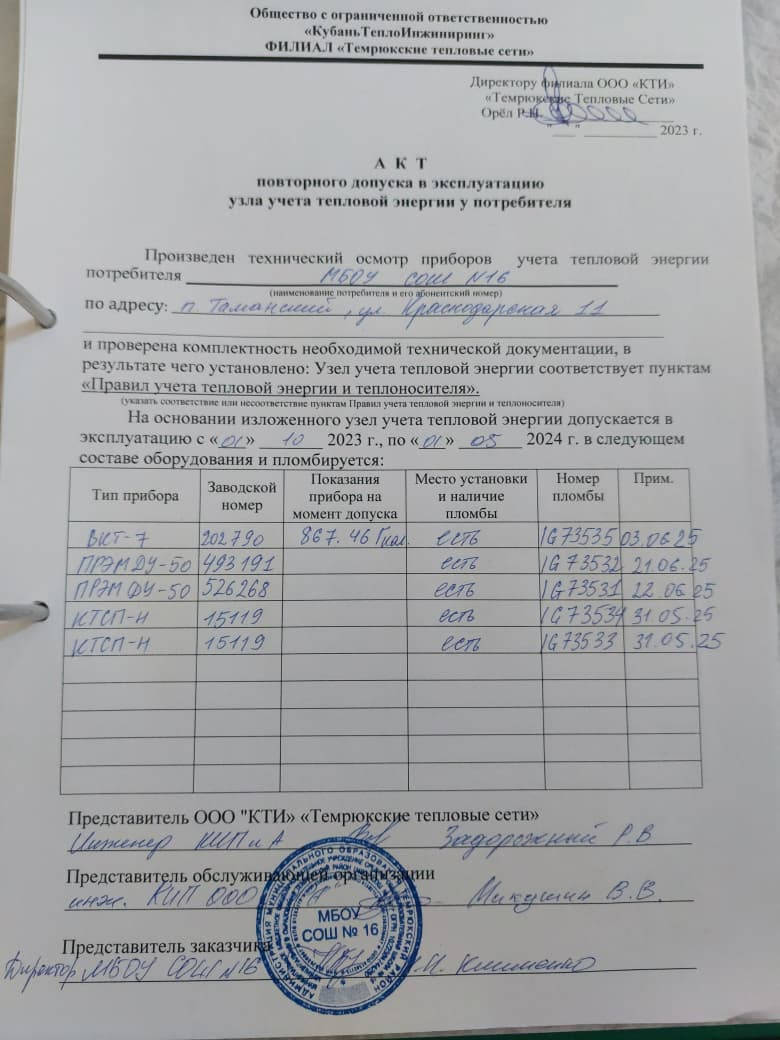 Общество с ограниченной ответственностью
«КубаньТеплоИнжиниринг»
ФИЛИАЛ «Темрюкские тепловые сети»
Директору филиала ООО «КТИ»
«Темрюкские Тепловые Сети»
Орёл Р.Н.
"___" __________ 2023 г.
А К Т
повторного допуска в эксплуатацию
узла учета тепловой энергии у потребителя
Произведен технический осмотр приборов учета тепловой энергии
потребителя МБОУ СОШ №16
(наименование потребителя и его абонентский номер)
по адресу: п. Таманский, ул. Краснодарская 11
и проверена комплектность необходимой технической документации, в
результате чего установлено: Узел учета тепловой энергии соответствует пунктам
«Правил учета тепловой энергии и теплоносителя».
(указать соответствие или несоответствие пунктам Правил учета тепловой энергии и теплоносителя)
На основании изложенного узел учета тепловой энергии допускается в
эксплуатацию с «01» 10 2023 г., по «01» 05 2024 г. в следующем
составе оборудования и пломбируется:
Тип прибора Заводской номер Показания прибора на момент допуска Место установки и наличие пломбы Номер пломбы Прим.
ВКТ-7 202790 867.46 Гкал. есть IG73535 03.06.25
ПРЭМ ДУ-50 493191 есть IG73532 21.06.25
ПРЭМ ДУ-50 526268 есть IG73531 22.06.25
КТСП-Н 15119 есть IG73534 31.05.25
КТСП-Н 15119 есть IG73533 31.05.25
Представитель ООО "КТИ» «Темрюкские тепловые сети»
Инженер КИПиА Задорожный Р.В
Представитель обслуживающей организации
инж. КИП ООО Микушин В.В.
Представитель заказчика
Директор МБОУ СОШ №16 Клименко
МБОУ
СОШ № 16